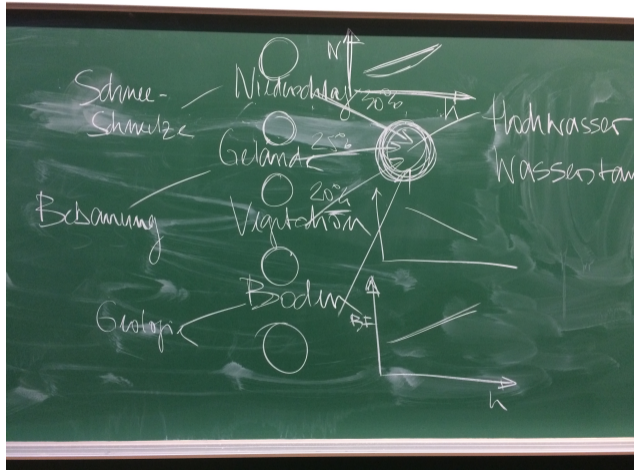 N
Schnee-
Schmelze
Niederschlag
50%
h
Hochwasser
Wasserstan
25%
Gelände
20%
Bebauung
Vegetation
Boden
BF
Geologie
h